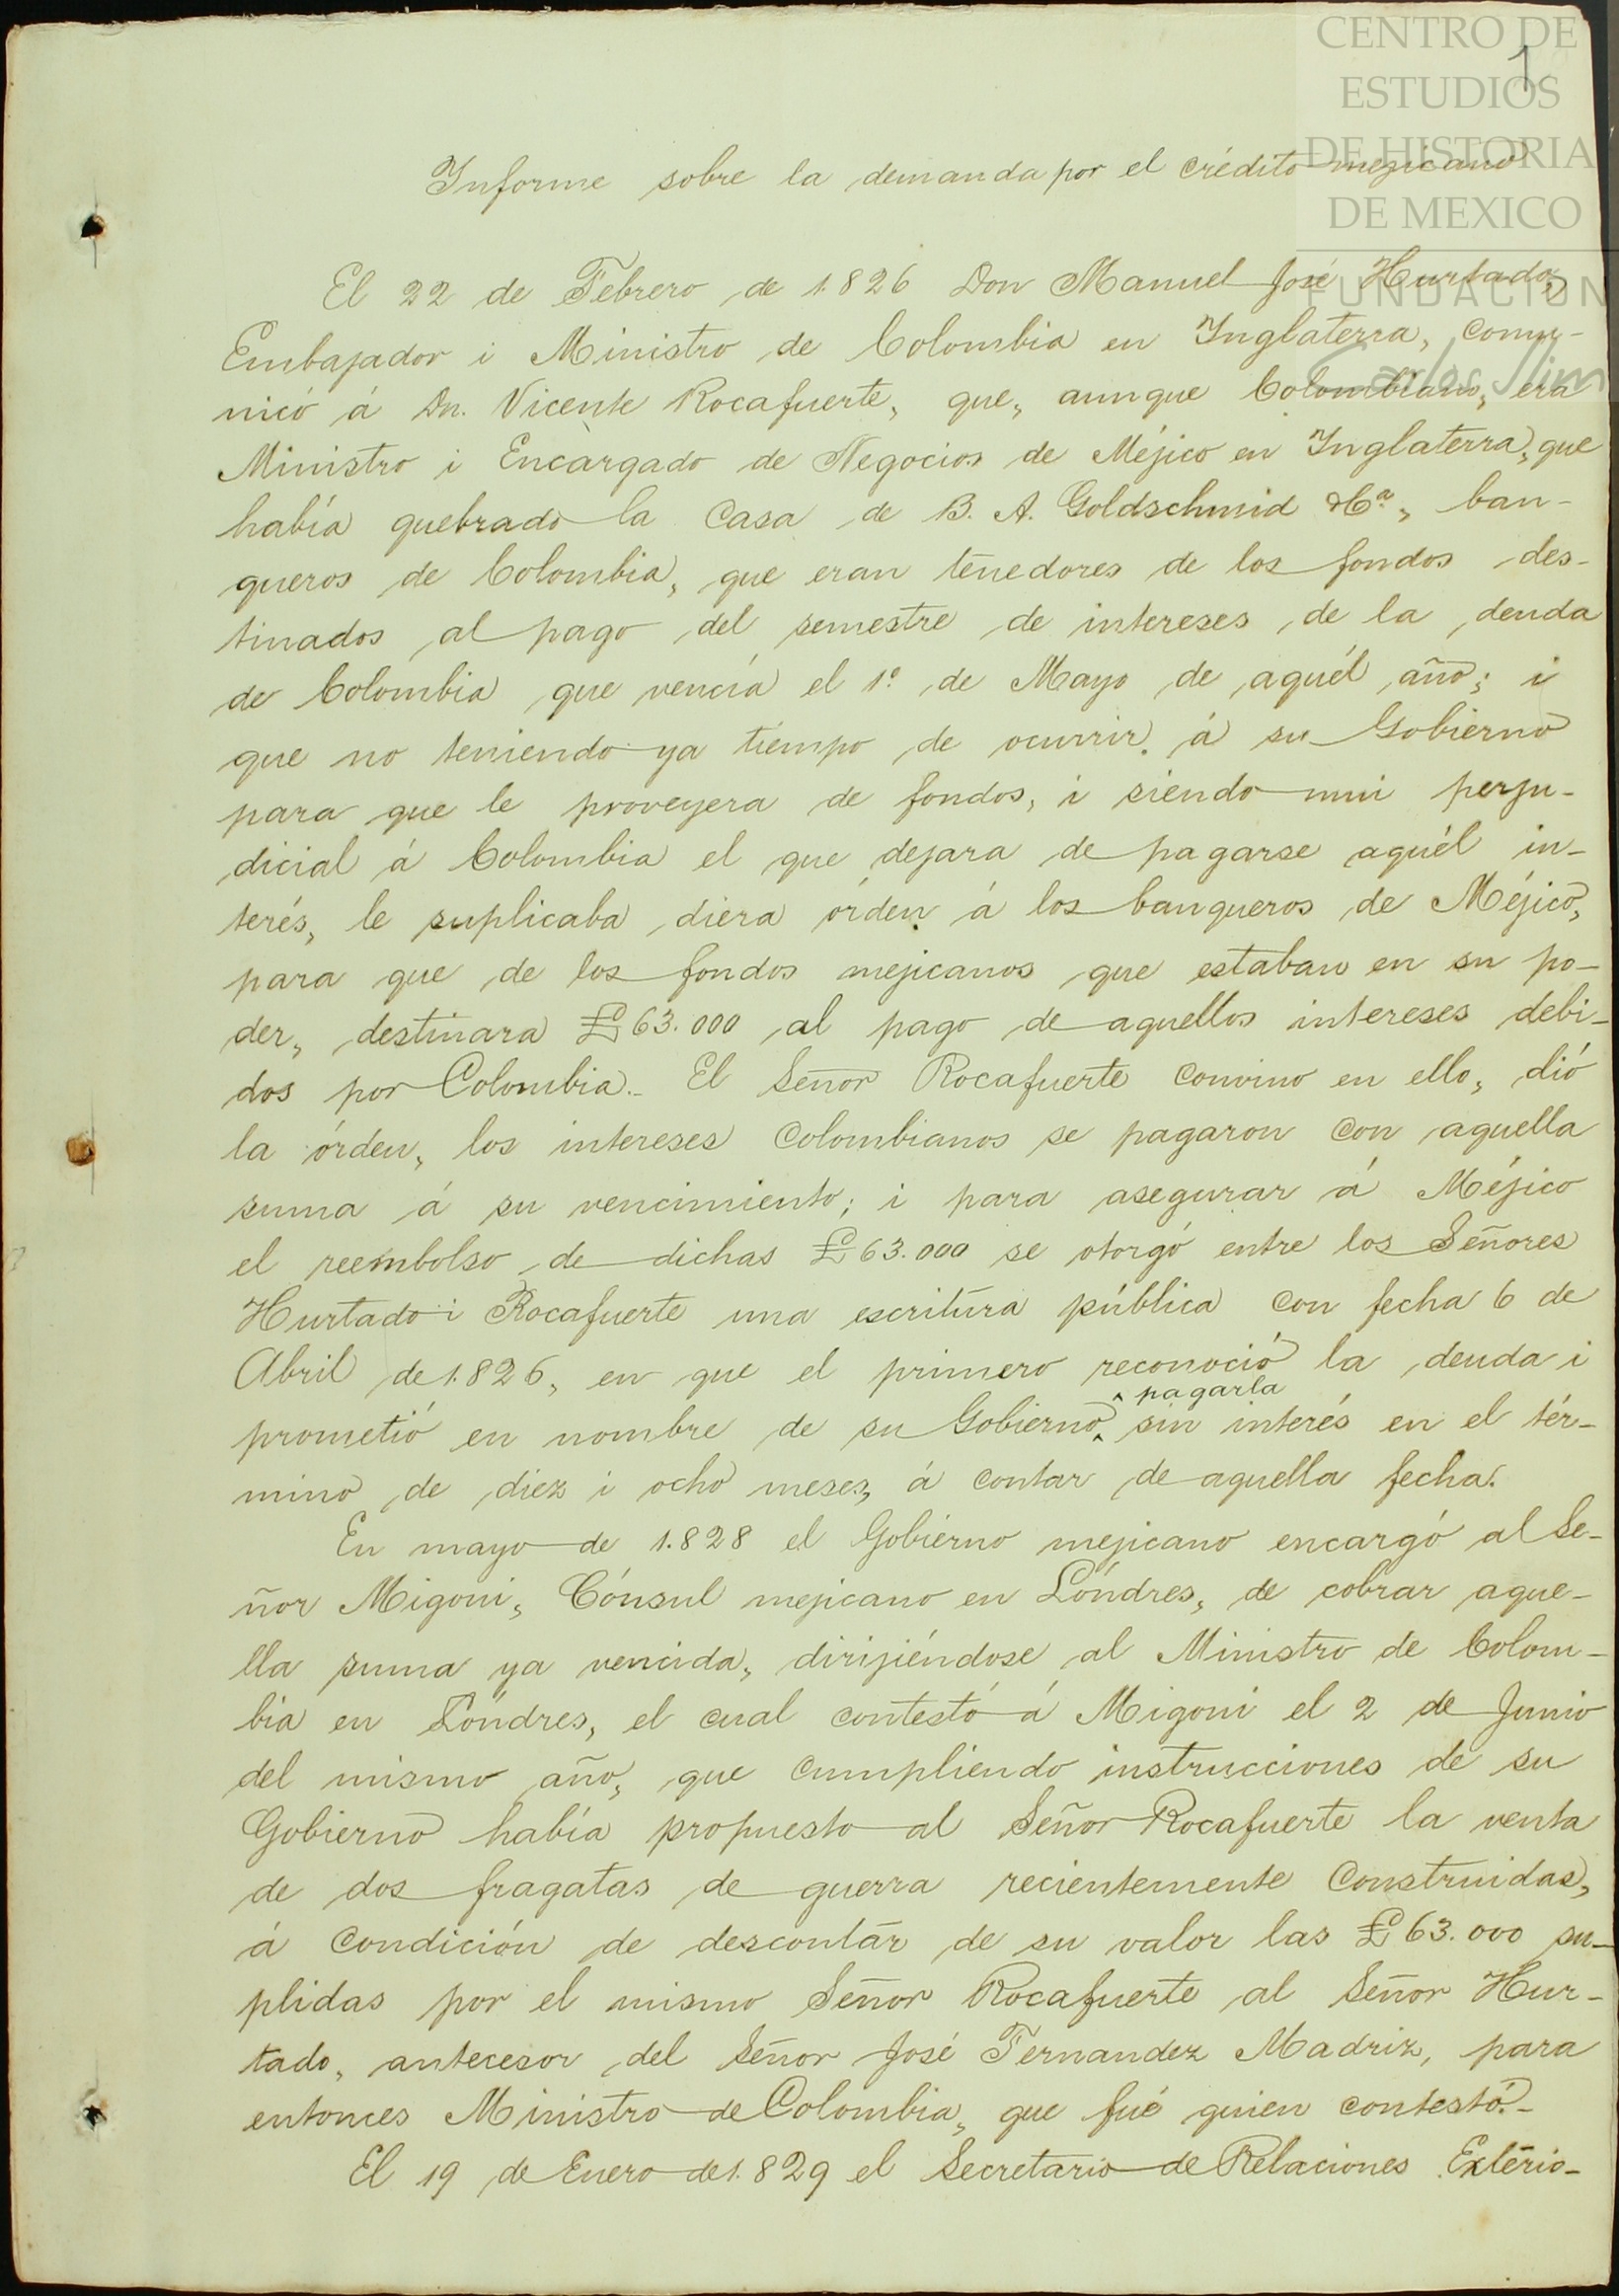 CENTRO DE
ESTUDIOS
DE HISTORIA
DE MEXICO
FUNDACION
Carlos Slim
1
Informe sobre la demanda por el crédito mejicano
El 22 de Febrero de 1.826 Don Manuel José Hurtado,
Embajador i Ministro de Colombia en Inglaterra, comu-
nicó á Dn. Vicente Rocafuerte, que, aunque Colombiano, era
Ministro i Encargado de Negocios de Méjico en Inglaterra, que
había quebrado la Casa de B. A. Goldschmid & Cª, ban-
queros de Colombia, que eran tenedores de los fondos des-
tinados al pago del semestre de intereses de la deuda
de Colombia que vencía el 1º de Mayo de aquél año; i
que no teniendo ya tiempo de ocurrir á su Gobierno
para que le proveyera de fondos, i siendo mui perju-
dicial á Colombia el que dejara de pagarse aquél in-
terés, le suplicaba diera órden á los banqueros de Méjico,
para que de los fondos mejicanos que estaban en su po-
der, destinara £63.000 al pago de aquellos intereses debi-
dos por Colombia.- El Señor Rocafuerte convino en ello, dió
la órden, los intereses Colombianos se pagaron con aquella
suma á su vencimiento; i para asegurar á Méjico
el reembolso de dichas £63.000 se otorgó entre los Señores
Hurtado i Rocafuerte una escritura pública con fecha 6 de
Abril de 1.826, en que el primero reconoció la deuda i
prometió en nombre de su Gobierno pagarla sin interés en el tér-
mino de diez i ocho meses, á contar de aquella fecha.
En mayo de 1.828 el Gobierno mejicano encargó al Se-
ñor Migoni, Cónsul mejicano en Lóndres, de cobrar aque-
lla suma ya vencida, dirijiéndose al Ministro de Colom-
bia en Lóndres, el cual contestó á Migoni el 2 de Junio
del mismo año, que cumpliendo instrucciones de su
Gobierno había propuesto al Señor Rocafuerte la venta
de dos fragatas de guerra recientemente construidas,
á condición de descontar de su valor las £63.000 su-
plidas por el mismo Señor Rocafuerte al Señor Hur-
tado, antecesor del Señor José Fernandez Madriz, para
entonces Ministro de Colombia, que fué quien contestó.-
El 19 de Enero de 1.829 el Secretario de Relaciones Exterio-